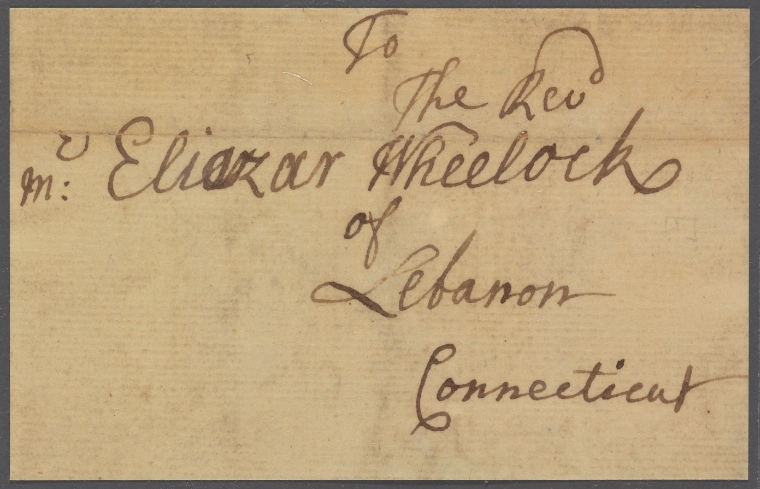 To
The Revd
Mr: Eliazar Wheelock
of
Lebanon
Connecticut